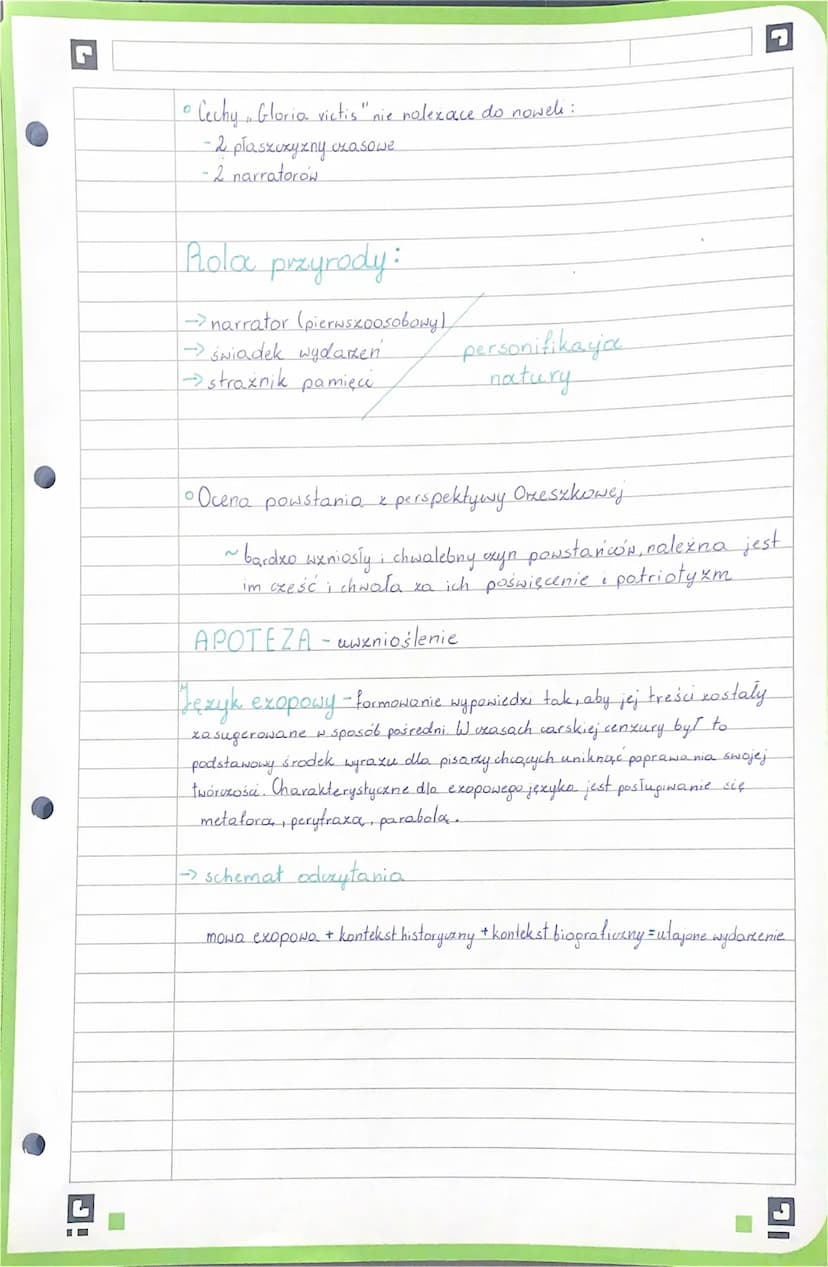 ° Cechy „Gloria victis" nie należące do noweli:
- 2 płaszczyzny czasowe
- 2 narratorów
Rola przyrody:
→ narrator (pierwszoosobowy)
→ świadek wydarzeń
→ strażnik pamięci
personifikacja
natury
° Ocena powstania z perspektywy Orzeszkowej
~ bardzo wzniosły i chwalebny czyn powstańców, należna jest
im cześć i chwała za ich poświęcenie i patriotyzm
APOTEZA - uwznioślenie
Język ezopowy - formowanie wypowiedzi tak, aby jej treści zostały
zasugerowane w sposób pośredni. W czasach carskiej cenzury był to
podstawowy środek wyrazu dla pisarzy chcących uniknąć poprawania swojej
twórczości. Charakterystyczne dla ezopowego języka jest posługiwanie się
metaforą, peryfrazą, parabolą.
→ schemat odczytania
mowa ezopowa + kontekst historyczny + kontekst biograficzny = utajone wydarzenie